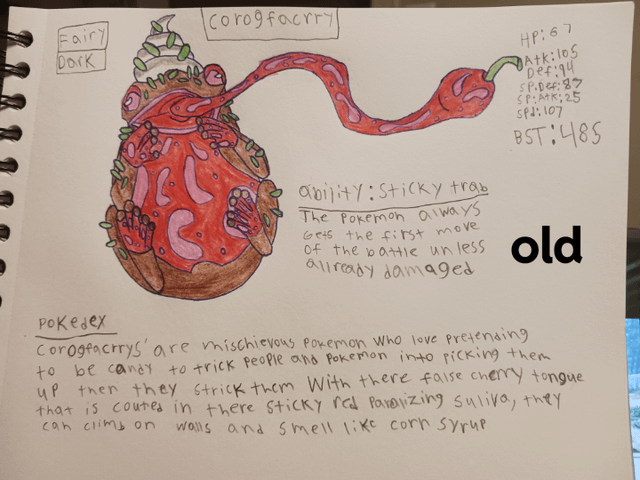 Corogfacrry
Fairy
Dark
HP: 67
Atk: 105
Def: 94
SP.Def: 87
SP.Atk: 25
SPd: 107
BST: 485
ability: Sticky trab
The Pokemon always
Gets the first move
of the battle unless
allready damaged
old
Pokedex
Corogfacrrys' are mischievous Pokemon who love pretending
to be candy to trick people and Pokemon into picking them
up then they strick them With there false cherry tongue
that is couted in there sticky red Paralizing Suliva, they
can climb on walls and smell like corn syrup